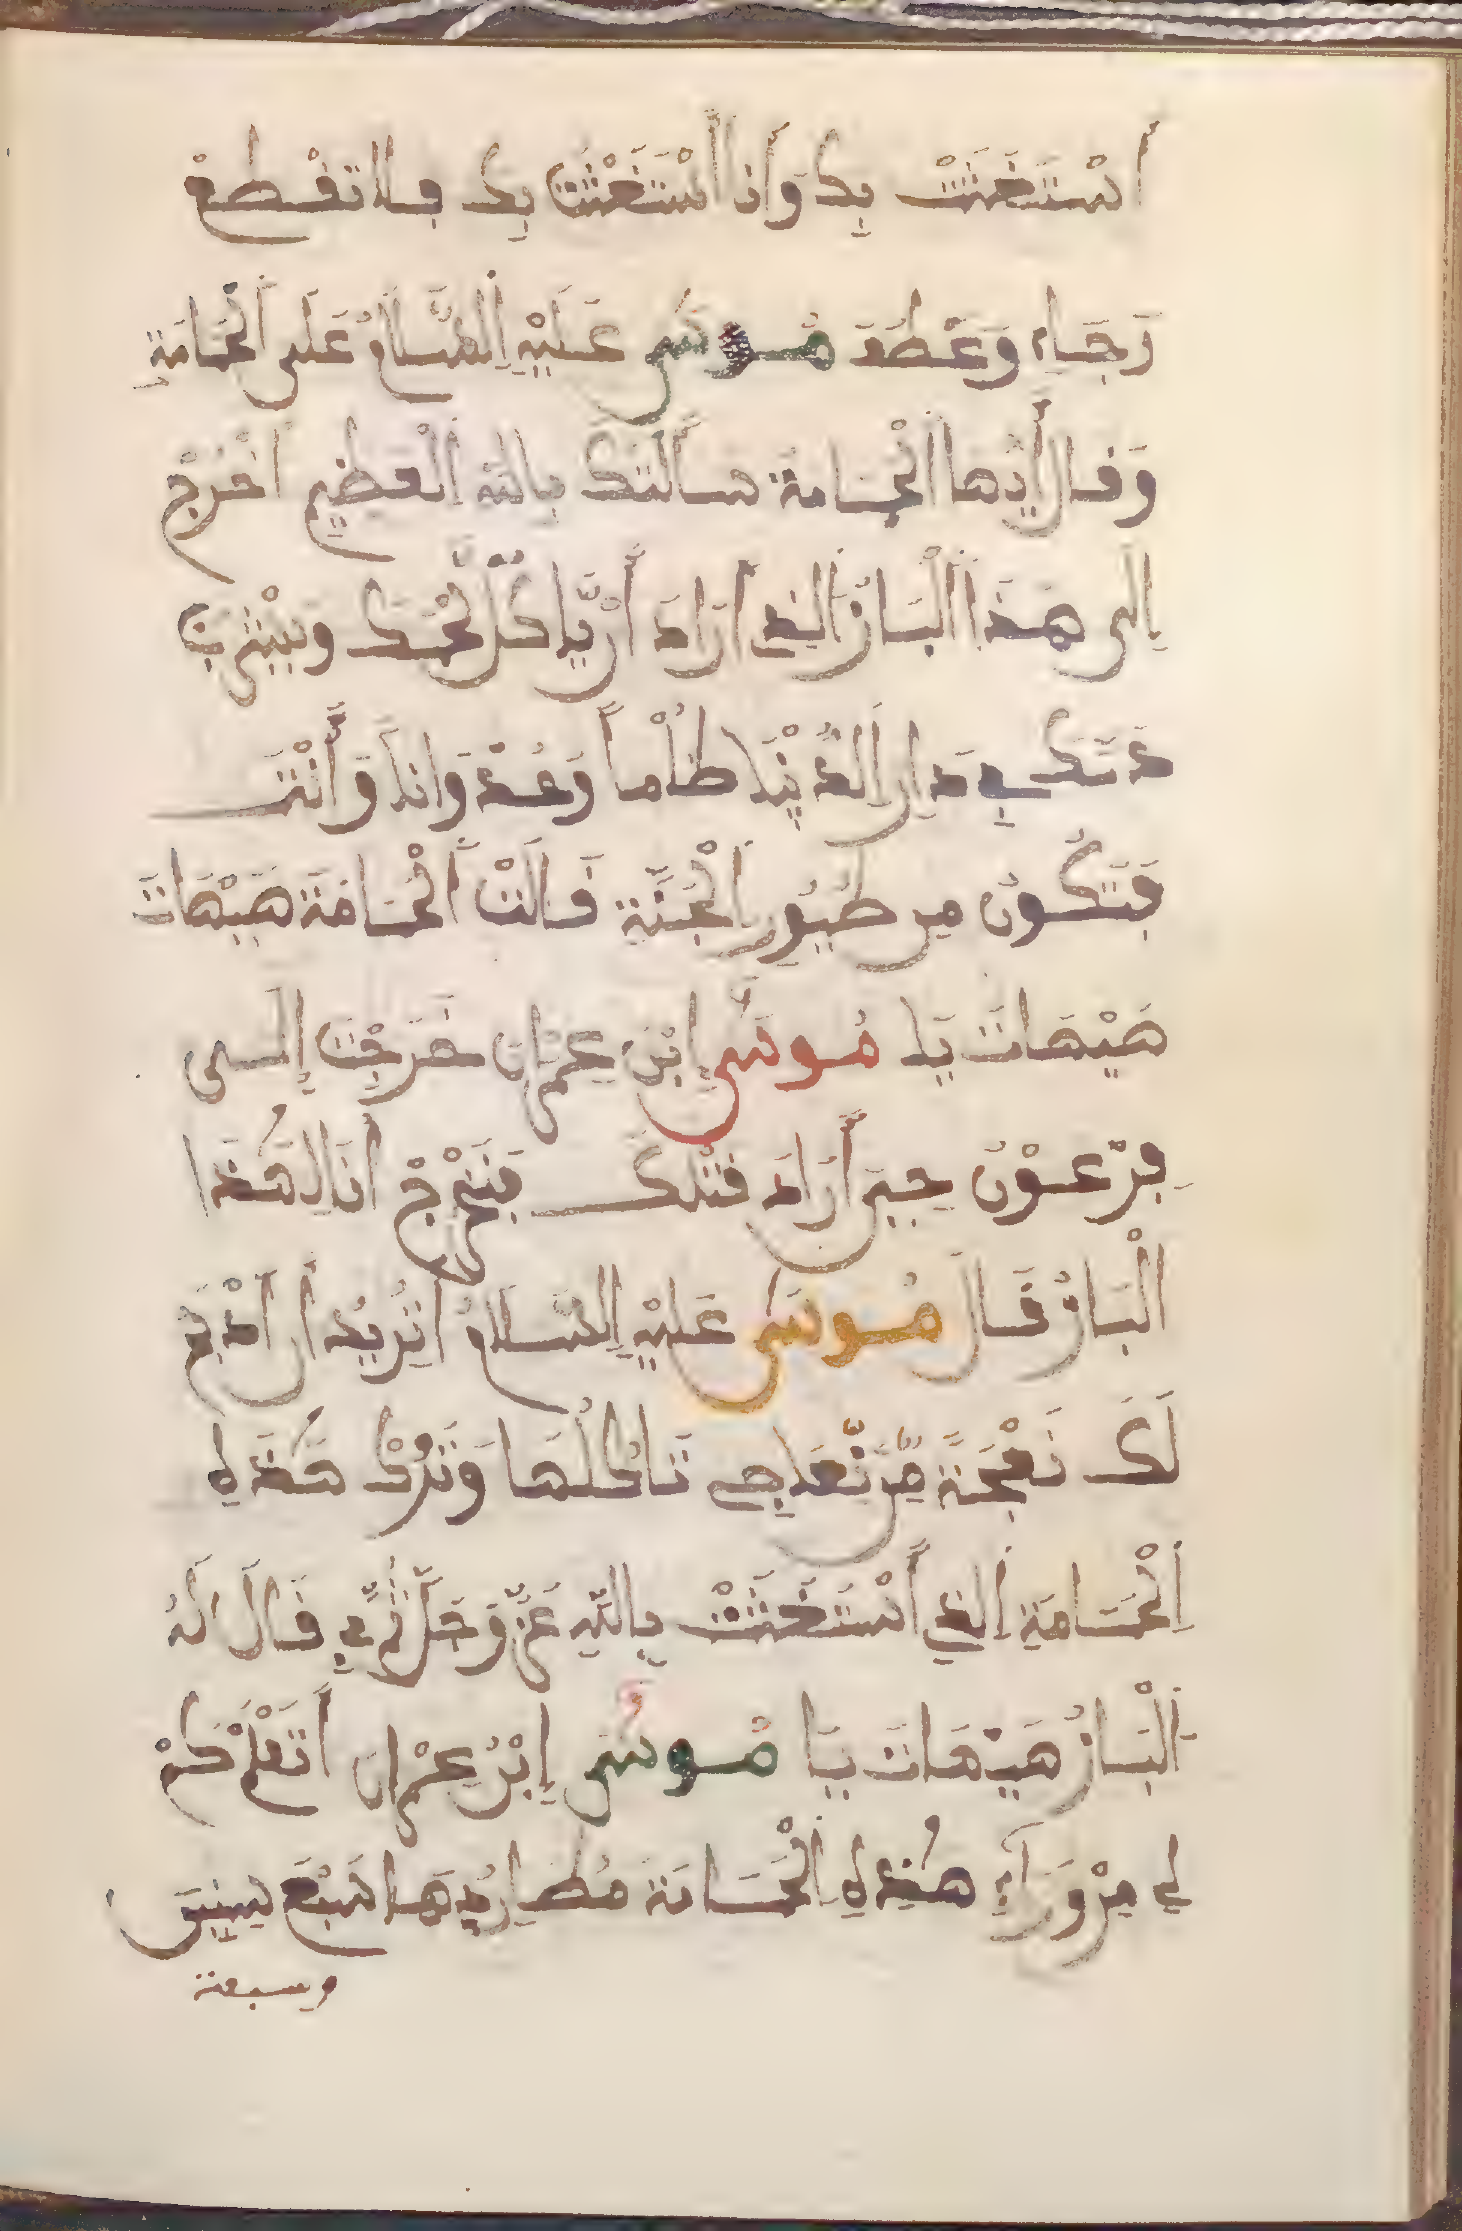 أَسْتَغَثَتْ بِكَ وَأَنا أَسْتَغَثْتُ بِكَ فلا تقْطعْ
رَجَاءِ وَعَطَفَ مُوسَى عَلَيْهِ اِلسَّلَامُ عَلَى اَلْحَمَامَةِ
وَقَال أَيُّها اَلْحَمَامَة سألتكَ بِاللهِ اِلْعَظِيمِ اَخْرُجْ
إِلَى هَذَا اَلْبَازُ الذِي أَرَادَ أَنْ يَّاكُلَ لَّحْمَكَ وَيَشْرَبَ
دَمَكَ فِي دَارِ اِلدُّنْيَا ظُلْماً وَعُدْوَاناً وَأَنْتَ
فَتَكُونُ مِن طُيُورِ اِلْجَنَّةِ قَالَتْ اَلْحَمَامَةَ هَيْهَاتَ
هَيْهَاتَ يَا مُوسَى إِبْنَ عِمْرَانَ خَرَجْتَ إِلَى
فِرْعَوْنَ حِينَ أَرَادَ قتْلَكَ فَنَخْرُجْ أَنَا لِهَذَا
الْبَازُ قَالَ مُوسَى عَلَيْهِ اِلسَّلَامُ أَتُرِيدُ أَن أَذْبَحَ
لَكَ نَعْجَةً مِّن نِّعَاجِي تَاكُلُهَا وَتَتْرُكْ هَذِهِ
اِلْحَمَامَةِ اِلذِي أَسْتَغَثَتْ بِاللَّهِ عَزَّ وَجَلَّ ثُمَّ بِي قَالَ لَهُ
اَلْبَازُ هَيْهَاتَ يَا مُوسَى إِبْنُ عِمْرَانَ أَتَعْلَمْ كَمْ
لِي مِنْ وَرَآءِ هَذِهِ اِلْحَمَامَةَ مُطَارِدُهَا سَبْعَ سِنِينَ
وسبعة